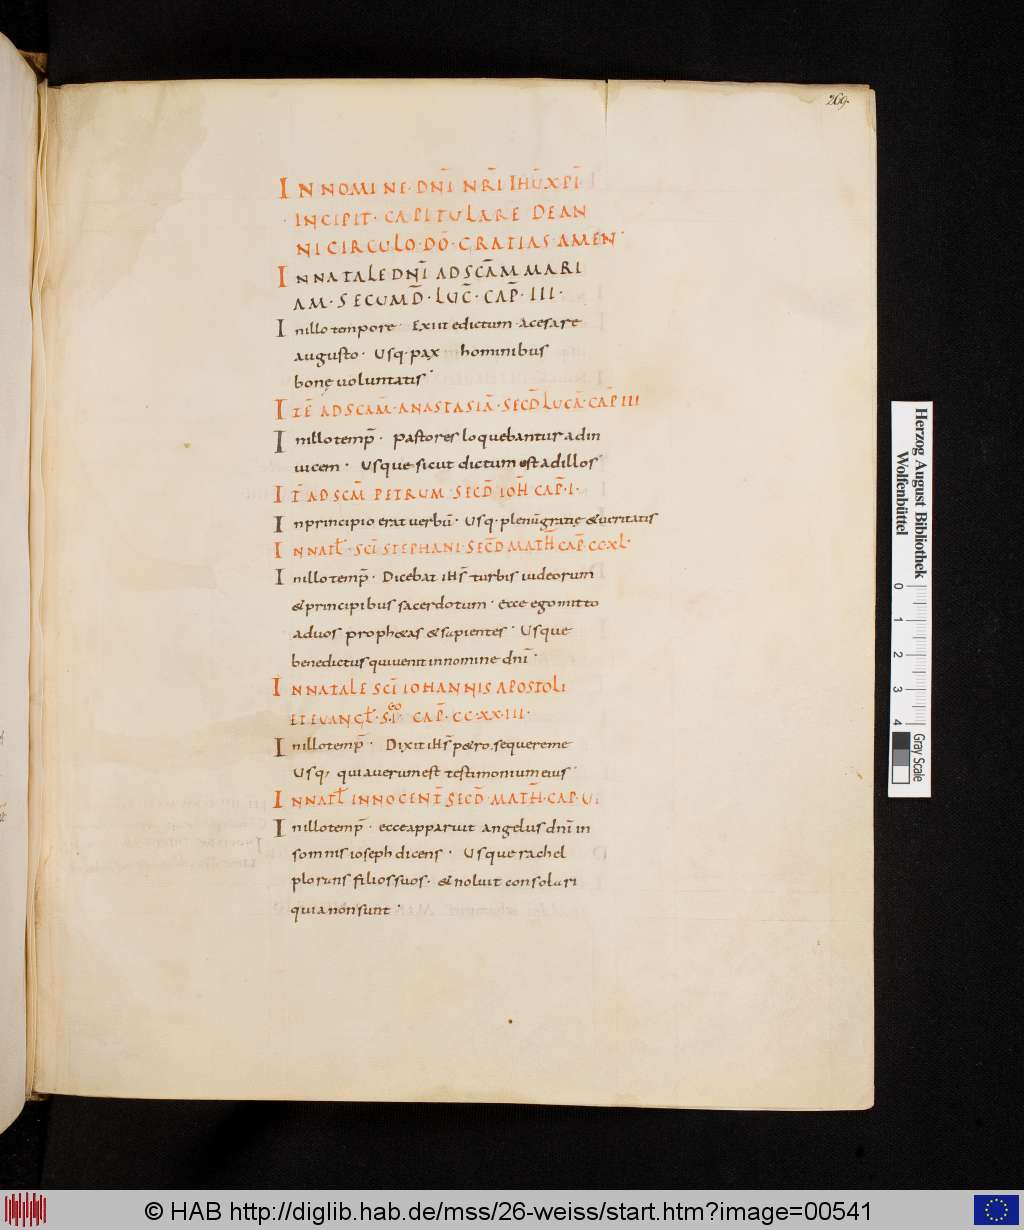 269.
IN NOMINE· DN̄I NR̄I IHŪ XPĪ·
·INCIPIT· CAPITULARE DE AN
NI CIRCULO· DŌ· GRATIAS· AMEN·
IN NATALE DN̄I AD SC̄AM MARI
AM· SECUMD̄· LUC̄· CAP̄· III·
In illo tenpore· Exiit edictum· acesare
augusto· Usq· pax hominibus
bonę uoluntatis·
ITĒ AD SCAM̄· ANASTASIĀ· SECD̄ LUCĀ· CAP̄ III
In illo temp̄· Pastores loquebantur adin
uicem· Usque sicut dictum est ad illos·
IT̄ AD SCM̄ PETRUM· SECD̄ IOH̄ CAP̄· I·
In principio erat uerbū· Usq· plenūgratię &ueritatis
IN NATL̄· SCĪ STEPHANI· SECD̄ MATH̄ CAP̄ CCXL·
In illo temp̄· Dicebat iHs̄ turbis iudeorum
& principibus sacerdotum· ecce ego mitto
aduos proph&as & sapientes· Usque
benedictus qui uenit in nomine dnī·
IN NATALE SCĪ IOHANNIS APOSTOLI
ET EUANGL̄· CAP̄· CC·XX·III·
In illo temp̄· Dixit iHs̄ p&ro· sequere me
Usq, quia uerum est testimonium eius·
IN NATL̄ INNOCENT̄ SECD̄· MATH̄· CAP· U·
In illo temp̄· ecce apparuit angelus dnī in
somnis ioseph dicens· Usque rachel
plorans filios suos· & noluit consolari
quia non sunt·
Herzog August Bibliothek
Wolfenbüttel
0 1 2 3 4
Gray Scale
© HAB http://diglib.hab.de/mss/26-weiss/start.htm?image=00541